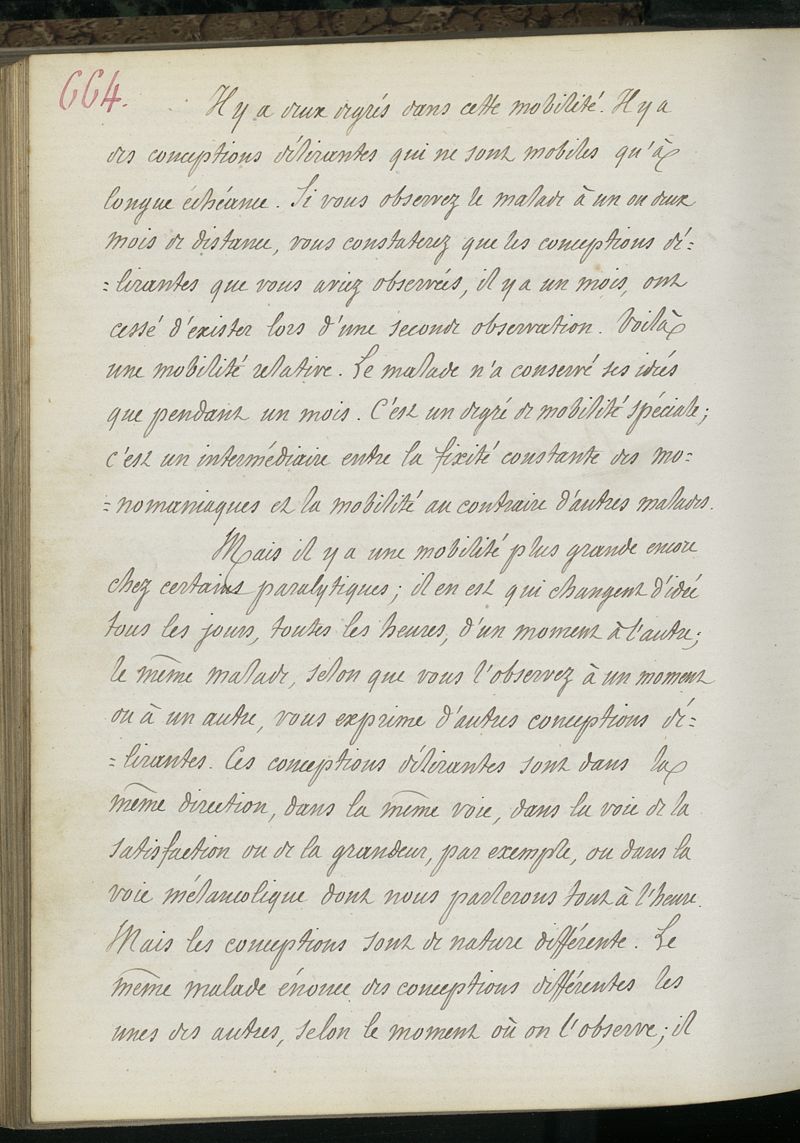 664.
Il y a deux degrés dans cette mobilité. Il y a
des conceptions délirantes qui ne sont mobiles qu'à
longue échéance. Si vous observez le malade à un ou deux
mois de distance, vous constaterez que les conceptions dé-
=lirantes que vous aviez observées, il y a un mois, ont
cessé d'exister lors d'une seconde observation. Voilà
une mobilité relative. Le malade n'a conservé ses idées
que pendant un mois. C'est un degré de mobilité spéciale;
c'est un intermédiaire entre la fixité constante des mo-
=nomaniaques et la mobilité au contraire d'autres malades.
Mais il y a une mobilité plus grande encore
chez certains paralytiques; il en est qui changent d'idée
tous les jours, toutes les heures, d'un moment à l'autre;
le même malade, selon que vous l'observez à un moment
ou à un autre, vous exprime d'autres conceptions dé-
=lirantes. Ces conceptions délirantes sont dans la
même direction, dans la même voie, dans la voie de la
satisfaction ou de la grandeur, par exemple, ou dans la
voie mélancolique dont nous parlerons tout à l'heure.
Mais les conceptions sont de nature différente. Le
même malade énonce des conceptions différentes les
unes des autres, selon le moment où on l'observe; il